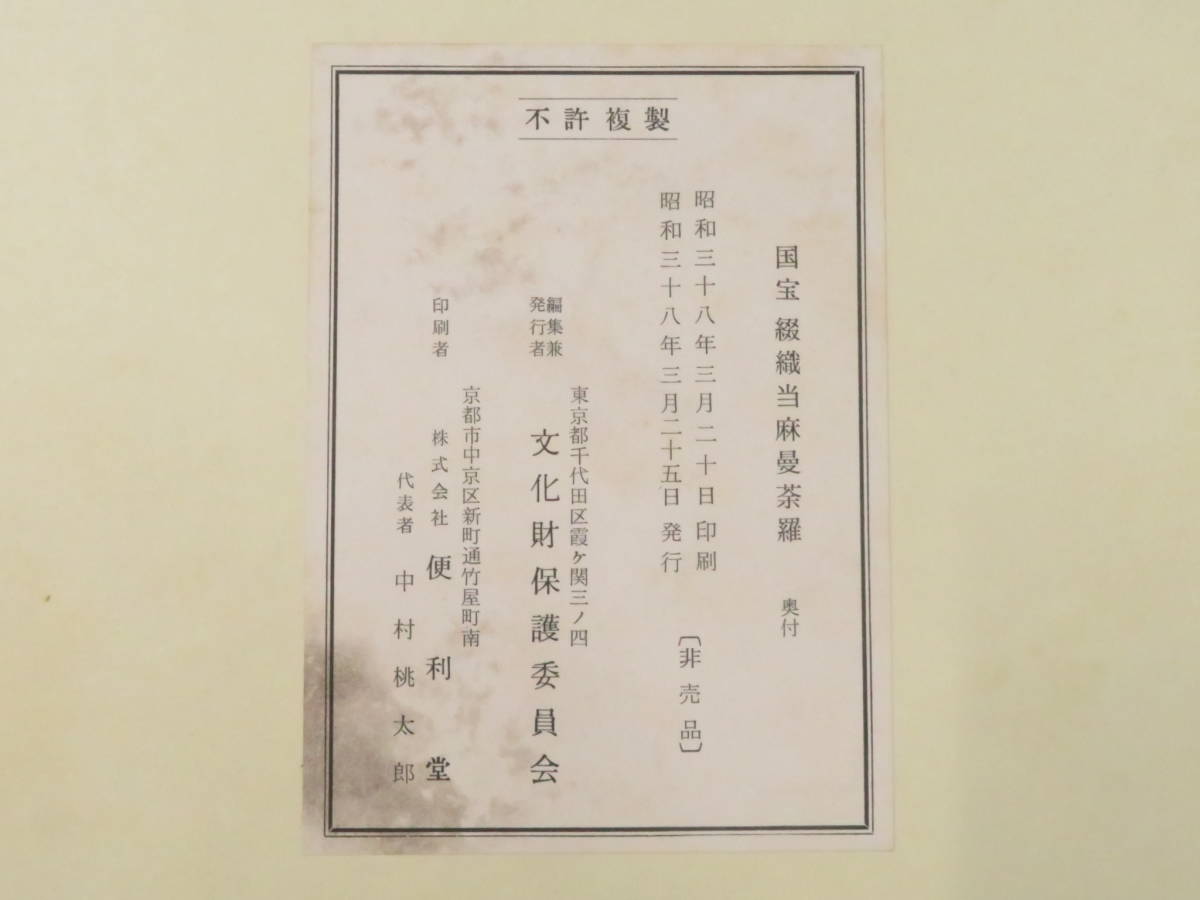 不許複製
国宝 綴織当麻曼荼羅 奥付
昭和三十八年三月二十日印刷
昭和三十八年三月二十五日発行
〔非売品〕
東京都千代田区霞ヶ関三ノ四
編集兼
発行者
文化財保護委員会
京都市中京区新町通竹屋町南
印刷者 株式会社 便利堂
代表者 中村桃太郎